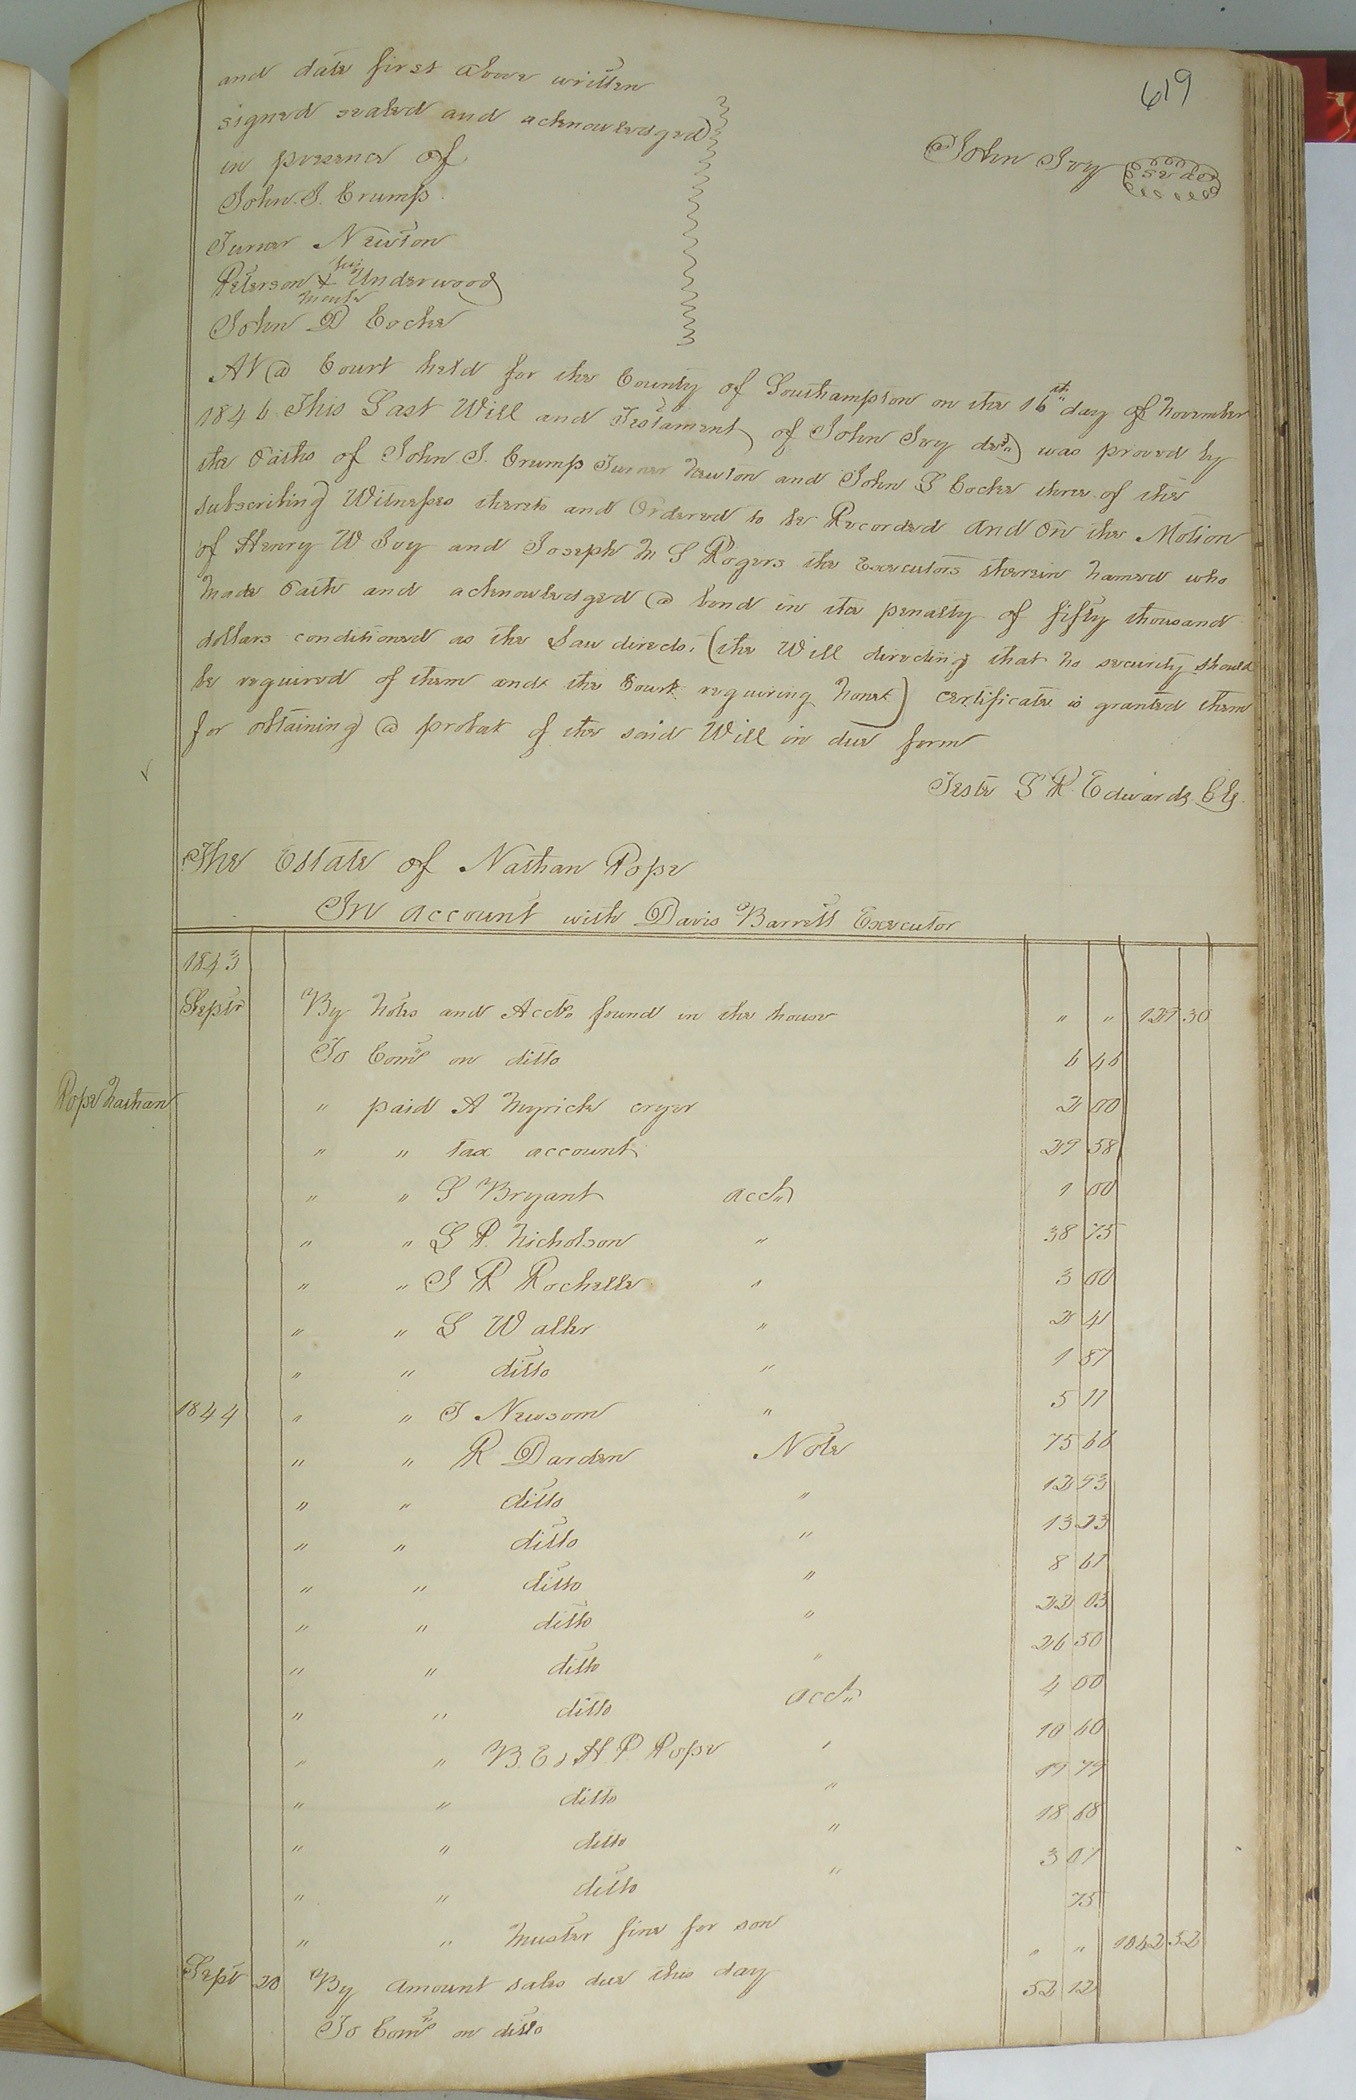 619
and date first above written
signed sealed and acknowledged
in presence of
John Ivy Seal
John. J. Crump
Turner Newton
Peterson his X mark Underwood
John D Cocke
At a Court held for the County of Southampton on the 16th day of November
1846 This Last Will and Testament of John Ivy decd was proved by
the oaths of John J. Crump Turner Newton and John D Cocke three of the
subscribing Witnesses thereto and Ordered to be Recorded and On the Motion
of Henry W Ivy and Joseph M S Rogers the Executors therein named who
made oath and acknowledged a bond in the penalty of fifty thousand
dollars conditioned as the Law directs, (the Will directing that no security should
be required of them and the Court requiring none) certificate is granted them
for obtaining a probat of the said Will in due form
Teste L R. Edwards Clk
The Estate of Nathan Pope
In account with Davis Barrett Executor
1843
Septr By Notes and Accts found in the house " " 129 30
To Coms on ditto 6 46
Pope Nathan
" paid A Myrick cryer 2 00
" " tax account 29 58
" " S Bryant acct 1 00
" " L P. Nicholson " 38 75
" " J R Rochelle " 3 00
" " L Waller " 2 41
" " ditto " 1 87
1844 " " J Newsom " 5 11
" " R Darden Note 75 66
" " ditto " 12 93
" " ditto " 13 23
" " ditto " 8 61
" " ditto " 22 03
" " ditto " 26 50
" " ditto acct 4 00
" " B. E & H P Pope " 10 60
" " ditto " 19 79
" " ditto " 18 68
" " ditto " 3 07
" " Muster fine for son 75
Sept 20 By amount sales due this day " " 1042 52
To Coms on ditto 52 12